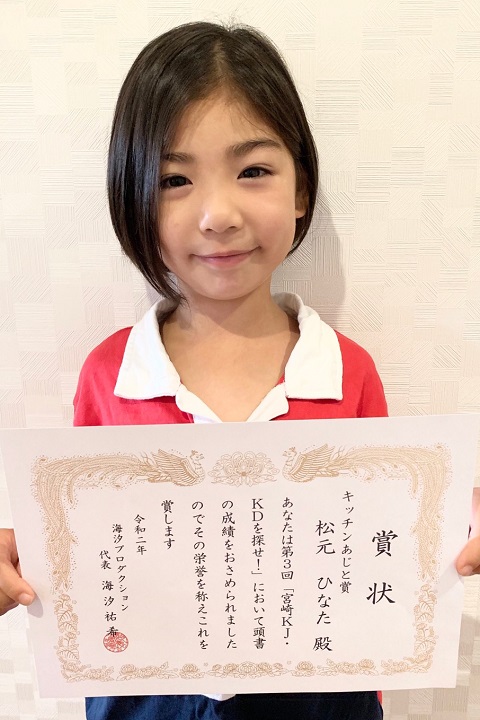 賞状
キッチンあじと賞
松元 ひなた 殿
あなたは第3回「宮崎KJ・
KDを探せ!」において頭書
の成績をおさめられました
のでその栄誉を称えこれを
賞します
令和二年
海汐プロダクション
代表 海汐祐希